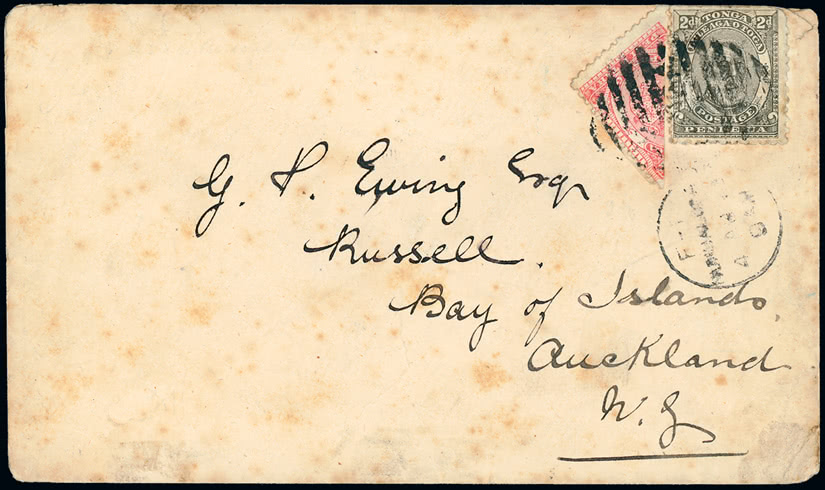 2d TONGA 2d
POSTAGE
PENI E UA
G. P. Ewing Esqr
Russell.
Bay of Islands,
Auckland
N.Z